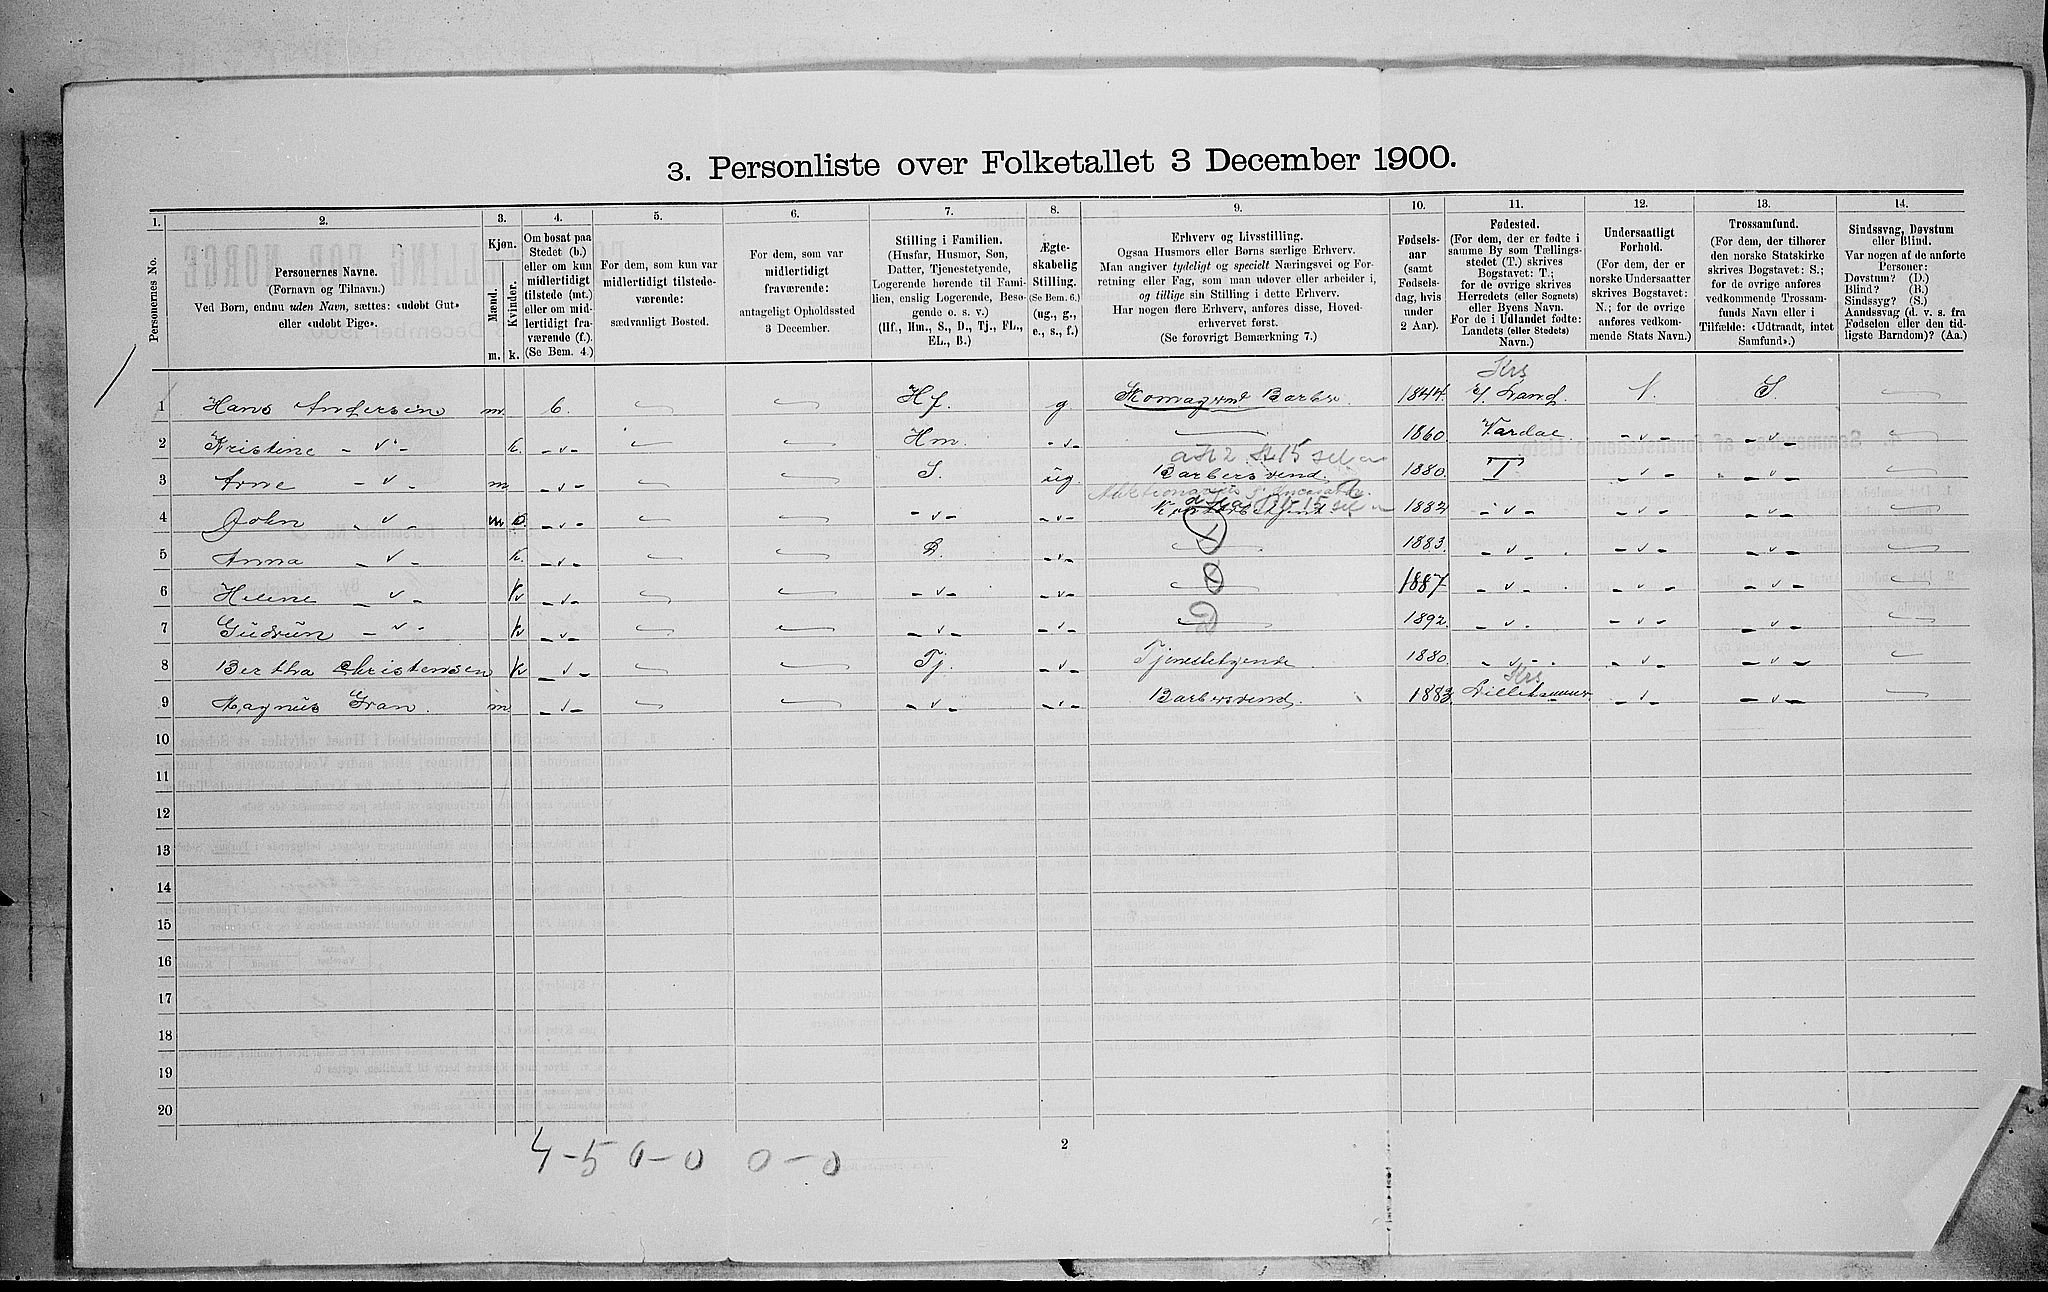 3. Personliste over Folketallet 3 December 1900.
1. 2. 3. 4. 5. 6. 7. 8. 9. 10. 11. 12. 13. 14.
Personernes No.
Personernes Navne.
(Fornavn og Tilnavn.)
Ved Børn, endnu uden Navn, sættes: «udøbt Gut»
eller «udøbt Pige».
Kjøn.
Mænd.
Kvinder.
m. k.
Om bosat paa
Stedet (b.)
eller om kun
midlertidigt
tilstede (mt.)
eller om mid-
lertidigt fra-
værende (f.).
(Se Bem. 4.)
For dem, som kun var
midlertidigt tilstede-
værende:
sædvanligt Bosted.
For dem, som var
midlertidigt
fraværende:
antageligt Opholdssted
3 December.
Stilling i Familien.
(Husfar, Husmor, Søn,
Datter, Tjenestetyende,
Logerende hørende til Fami-
lien, enslig Logerende, Besø-
gende o. s. v.)
(Hf., Hm., S., D., Tj., FL.,
EL., B.)
Ægte-
skabelig
Stilling.
(Se Bem. 6.)
(ug., g.,
e., s., f.)
Erhverv og Livsstilling.
Ogsaa Husmors eller Børns særlige Erhverv.
Man angiver tydeligt og specielt Næringsvei og For-
retning eller Fag, som man udøver eller arbeider i,
og tillige sin Stilling i dette Erhverv.
Har nogen flere Erhverv, anføres disse, Hoved-
erhvervet først.
(Se forøvrigt Bemærkning 7.)
Fødsels-
aar
(samt
Fødsels-
dag, hvis
under
2 Aar).
Fødested.
(For dem, der er fødte i
samme By som Tællings-
stedet (T.) skrives
Bogstavet: T.;
for de øvrige skrives
Herredets (eller Sognets)
eller Byens Navn.
For de i Udlandet fødte:
Landets (eller Stedets)
Navn.)
Undersaatligt
Forhold.
(For dem, der er
norske Undersaatter
skrives Bogstavet:
N.; for de øvrige
anføres vedkom-
mende Stats Navn.)
Trossamfund.
(For dem, der tilhører
den norske Statskirke
skrives Bogstavet: S.;
for de øvrige anføres
vedkommende Trossam-
funds Navn eller i
Tilfælde: «Udtraadt, intet
Samfund».)
Sindssvag, Døvstum
eller Blind.
Var nogen af de anførte
Personer:
Døvstum? (D.)
Blind? (B.)
Sindssyg? (S.)
Aandssvag (d. v. s. fra
Fødselen eller den tid-
ligste Barndom)? (Aa.)
Krs
1 Hans Andersen m b. Hf. g Barber. 1844. Land. N. S.
2 Kristine - v - k. - v - Hm. - v - 1860 Vardal. - v - - v -
3 Arne - v - m - v - S. ug. Barbersvend. 1880. T - v - - v -
4 John - v - m - v - - v - - v - 1882 - v - - v - - v -
5 Anna - v - k. - v - D. - v - 1883. - v - - v - - v -
6 Helene - v - k - v - - v - - v - 1887 - v - - v - - v -
7 Gudrun - v - k - v - - v - - v - 1892. - v - - v - - v -
8 Bertha Christensen k - v - Tj. - v - Tjenestetyende 1880. - v - - v - - v -
Krs
9 Magnus Gran. m - v - - v - - v - Barbersvend. 1883. Lillehammer - v - - v -
10
11
12
13
14
15
16
17
18
19
20
2
4-5 0-0 0-0